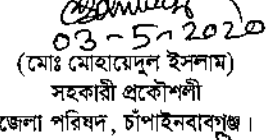 03-5-2020
(মোঃ মোহায়েদুল ইসলাম)
সহকারী প্রকৌশলী
জেলা পরিষদ, চাঁপাইনবাবগঞ্জ।